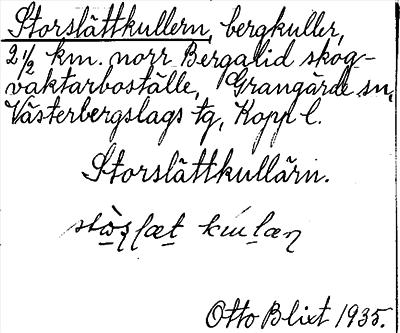 Storslättkullern, bergkulle,
2 1/2 km. norr Bergalid skog-
vaktarboställe, Grangärde sn,
Västerbergslags tg, Kopp l.
Storslättkullärn.
Otto Blixt 1935.